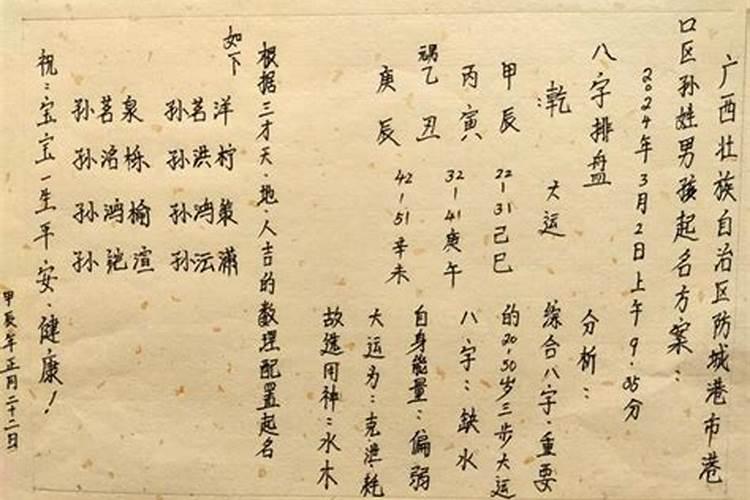 广西壮族自治区防城港市港
口区孙姓男孩起名方案：
2024年3月2日上午9.35分
八字排盘
乾：
甲辰
丙寅
乙丑
庚辰
大运
22-31己巳
32-41庚午
42-51辛未
分析：
综合八字.重要
的20.50岁三步大运
八字：缺水
自身能量：偏弱
大运为：克泄耗
故选用神：水木
根据三才天.地.人吉的数理配置起名
如下
孙茗洋
孙洪柠
孙鸿
孙沄
孙茗泉
孙洺栎
孙鸿榆
孙渲
祝：宝宝一生平安.健康！
甲辰年正月二十二日